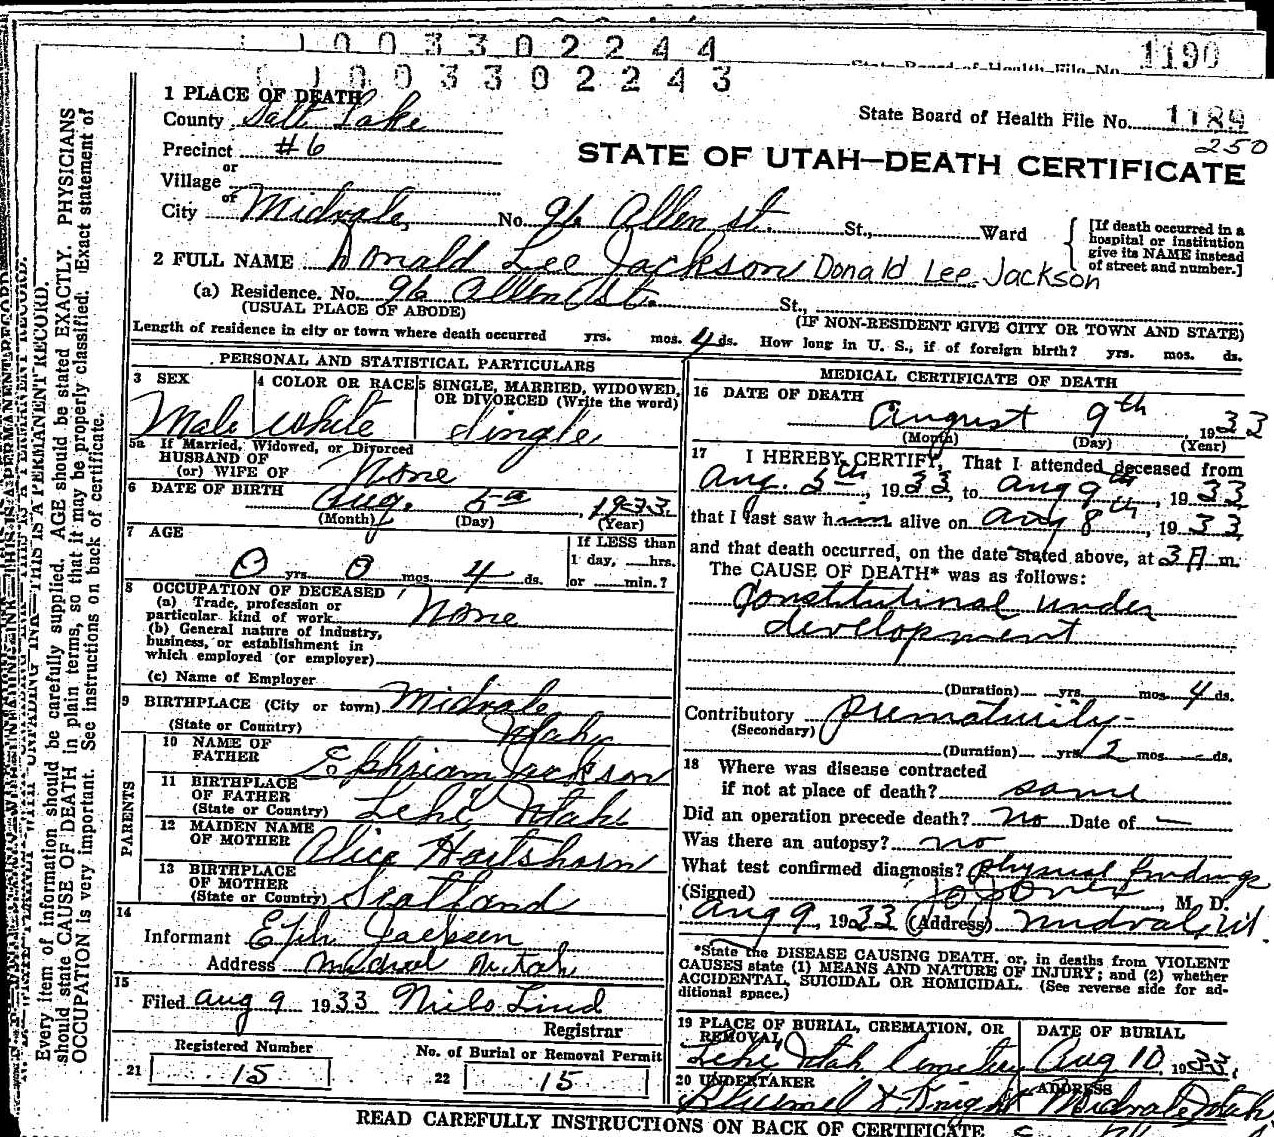 1003302244
1190
State Board of Health File No.
1003302243
1 PLACE OF DEATH
County Salt Lake
State Board of Health File No. 1189
250
Precinct #6
or
Village
STATE OF UTAH—DEATH CERTIFICATE
or
City Midvale, No. 96 Allen st. St., Ward
[If death occurred in a
hospital or institution
give its NAME instead
of street and number.]
2 FULL NAME Donald Lee Jackson Donald Lee Jackson
(a) Residence. No. 96 Allen st. St.,
(USUAL PLACE OF ABODE)
(IF NON-RESIDENT GIVE CITY OR TOWN AND STATE)
Length of residence in city or town where death occurred yrs. mos. 4 ds. How long in U. S., if of foreign birth? yrs. mos. ds.
PERSONAL AND STATISTICAL PARTICULARS
3 SEX
Male
4 COLOR OR RACE
white
5 SINGLE, MARRIED, WIDOWED,
OR DIVORCED (Write the word)
single
5a If Married, Widowed, or Divorced
HUSBAND OF
(or) WIFE OF None
6 DATE OF BIRTH
Aug. 5 1933
(Month) (Day) (Year)
7 AGE
0 yrs. 0 mos. 4 ds.
If LESS than
1 day, hrs.
or min.?
8 OCCUPATION OF DECEASED
(a) Trade, profession or
particular kind of work None
(b) General nature of industry,
business, or establishment in
which employed (or employer)
(c) Name of Employer
9 BIRTHPLACE (City or town) Midvale
(State or Country) Utah
PARENTS
10 NAME OF
FATHER Ephriam Jackson
11 BIRTHPLACE
OF FATHER
(State or Country) Lehi Utah
12 MAIDEN NAME
OF MOTHER Alice Hartshorn
13 BIRTHPLACE
OF MOTHER
(State or Country) Scotland
14
Informant Eph Jackson
Address Midval Utah
15
Filed Aug 9 1933 Nils Lind
Registrar
Registered Number
21 15
No. of Burial or Removal Permit
22 15
MEDICAL CERTIFICATE OF DEATH
16 DATE OF DEATH
August 9th 1933
(Month) (Day) (Year)
17 I HEREBY CERTIFY, That I attended deceased from
Aug. 5th, 1933, to Aug 9th, 1933
that I last saw him alive on Aug 8th, 1933
and that death occurred, on the date stated above, at 3 A m.
The CAUSE OF DEATH* was as follows:
Constitutional under
development
(Duration) yrs. mos. 4 ds.
Contributory prematurity
(Secondary)
(Duration) yrs. 2 mos. ds.
18 Where was disease contracted
if not at place of death? same
Did an operation precede death? no Date of —
Was there an autopsy? no
What test confirmed diagnosis? physical findings
(Signed) M. D.
Aug 9, 1933 (Address) Midval, Ut.
*State the DISEASE CAUSING DEATH, or, in deaths from VIOLENT
CAUSES state (1) MEANS AND NATURE OF INJURY; and (2) whether
ACCIDENTAL, SUICIDAL OR HOMICIDAL. (See reverse side for ad-
ditional space.)
19 PLACE OF BURIAL, CREMATION, OR
REMOVAL
Lehi Utah Cemetery
DATE OF BURIAL
Aug 10 1933
20 UNDERTAKER
Bluemel & Knight
ADDRESS
Midvale Utah
READ CAREFULLY INSTRUCTIONS ON BACK OF CERTIFICATE
Every item of information should be carefully supplied. AGE should be stated EXACTLY. PHYSICIANS
should state CAUSE OF DEATH in plain terms, so that it may be properly classified. Exact statement of
OCCUPATION is very important. See instructions on back of certificate.
THIS IS A PERMANENT RECORD.